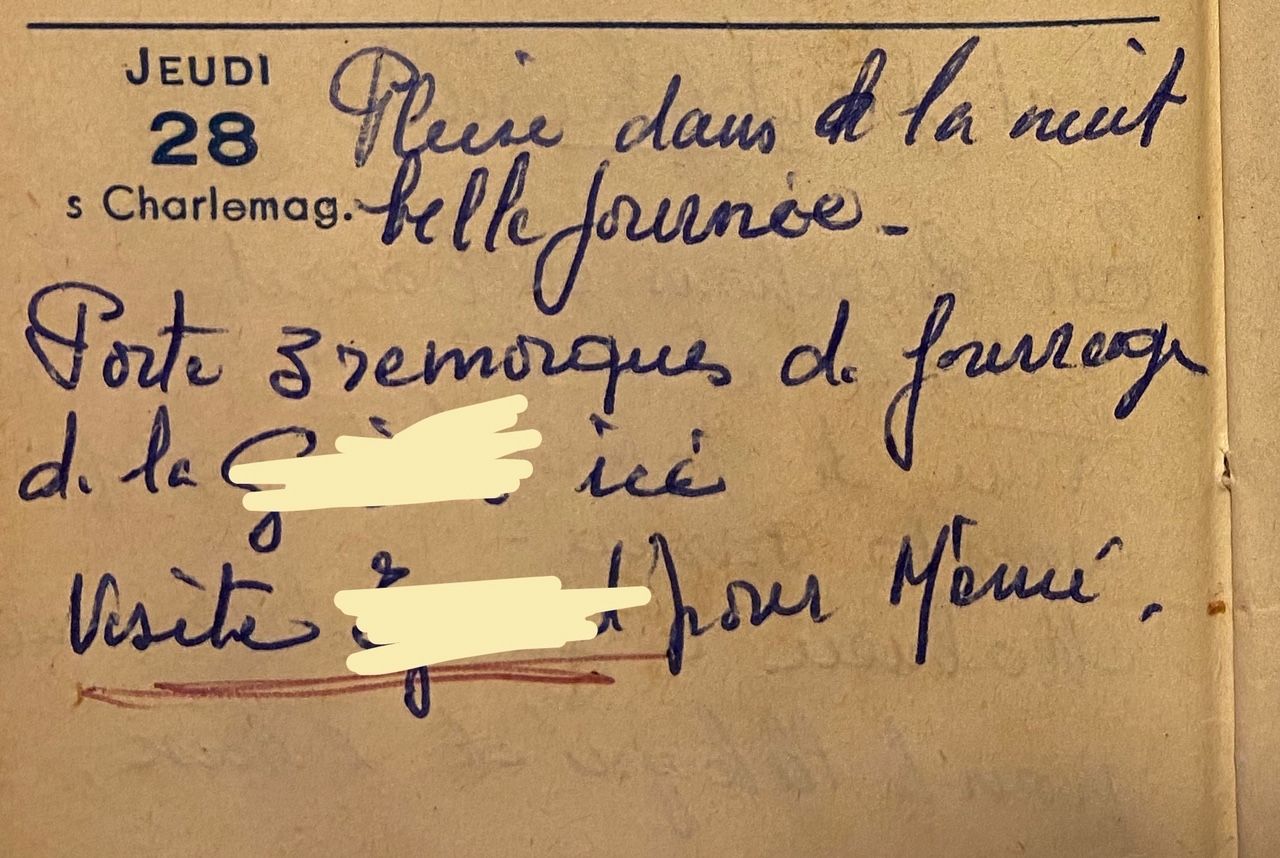 JEUDI
28
s Charlemag.
Pluie dans la nuit
belle journée.
Porte 3 remorques de fourrage
de la ici
Visite pour Mémé.